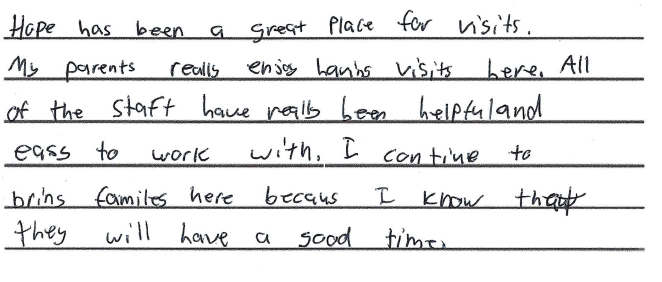 Hope has been a great place for visits.
My parents really enjoy having visits here. All
of the staff have really been helpful and
easy to work with. I contine to
bring familes here becaus I know that
they will have a good time.